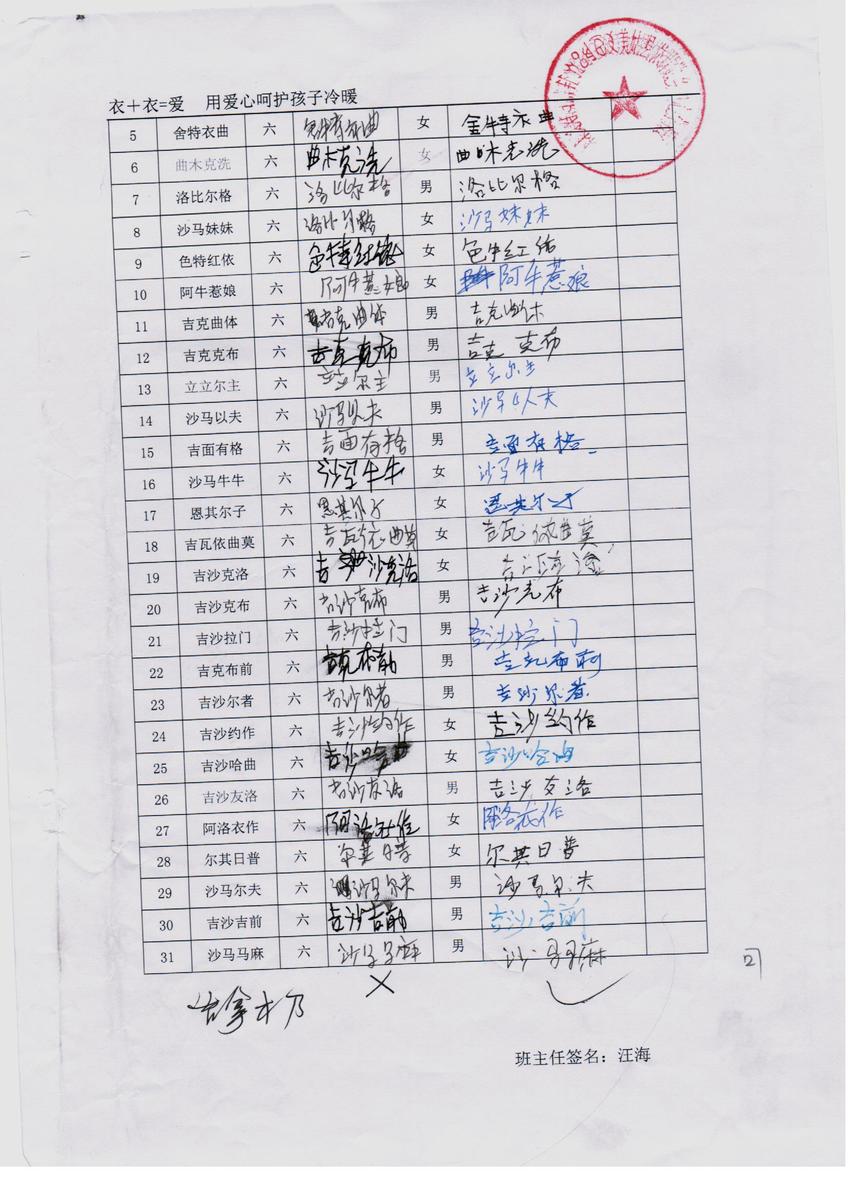 衣+衣=爱 用爱心呵护孩子冷暖
5 舍特衣曲 六 女 金特衣曲
6 曲木克洗 六 曲木克洗 女 曲木克洗
7 洛比尔格 六 洛比尔格 男 洛比尔格
8 沙马妹妹 六 洛比尔格 女 沙马妹妹
9 色特红依 六 色特红依 女 色特红依
10 阿牛惹娘 六 阿牛惹娘 女 阿牛惹娘
11 吉克曲体 六 吉克曲体 男 吉克曲体
12 吉克克布 六 吉克克布 男 吉克克布
13 立立尔主 六 立立尔主 男 立立尔主
14 沙马以夫 六 沙马以夫 男 沙马以夫
15 吉面有格 六 吉面有格 男 吉面有格
16 沙马牛牛 六 沙马牛牛 女 沙马牛牛
17 恩其尔子 六 恩其尔子 女 恩其尔子
18 吉瓦依曲莫 六 吉瓦依曲莫 女 吉瓦依曲莫
19 吉沙克洛 六 吉沙克洛 女
20 吉沙克布 六 吉沙克布 男 吉沙克布
21 吉沙拉门 六 吉沙拉门 男 吉沙拉门
22 吉克布前 六 吉克布前 男 吉克布前
23 吉沙尔者 六 吉沙尔者 男 吉沙尔者
24 吉沙约作 六 吉沙约作 女 吉沙约作
25 吉沙哈曲 六 吉沙哈曲 女 吉沙哈曲
26 吉沙友洛 六 吉沙友洛 男 吉沙友洛
27 阿洛衣作 六 阿洛衣作 女 阿洛衣作
28 尔其日普 六 尔其日普 女 尔其日普
29 沙马尔夫 六 沙马尔夫 男 沙马尔夫
30 吉沙吉前 六 吉沙吉前 男 吉沙吉前
31 沙马马麻 六 沙马马麻 男 沙马马麻
班主任签名：汪海